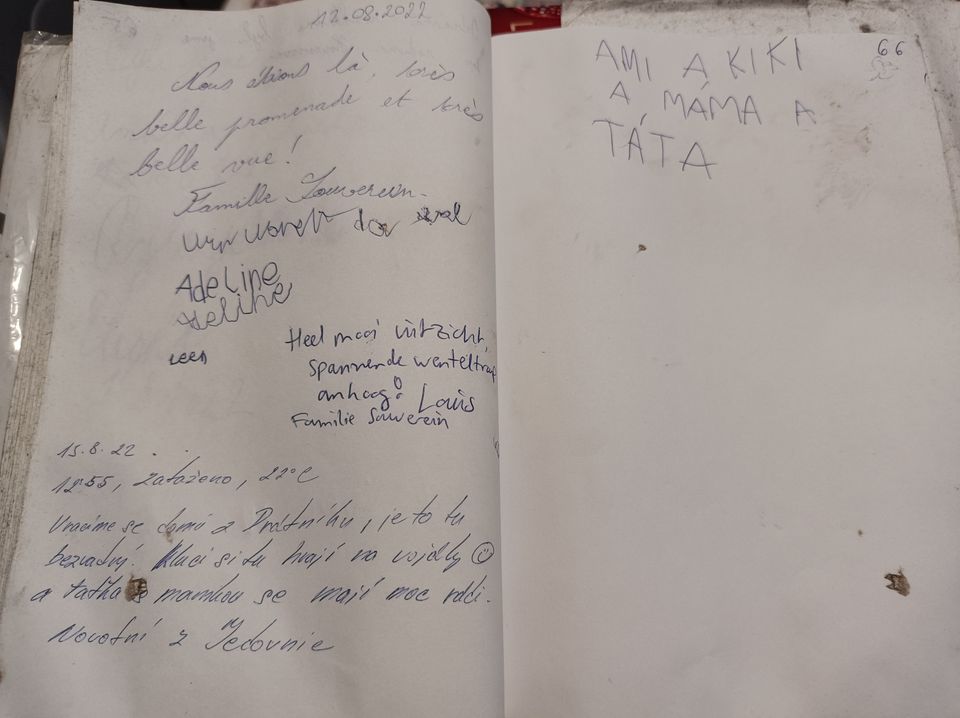 12.08.2022
Nous étions là, très
belle promenade et très
belle vue!
Famille Souverein
Adeline
Heel mooi uitzicht,
spannende wenteltrap
omhoog! Louis
Familie Souverein
15.8.22
12:55, zataženo, 22°C
Vracíme se domů z Drátníku, je to tu
bezvadný. Kluci si tu hrají na vojáky
a taťka s mamkou se mají moc rádi.
Novotní z Jedovnic
66
AMI A KIKI
A MÁMA A
TÁTA